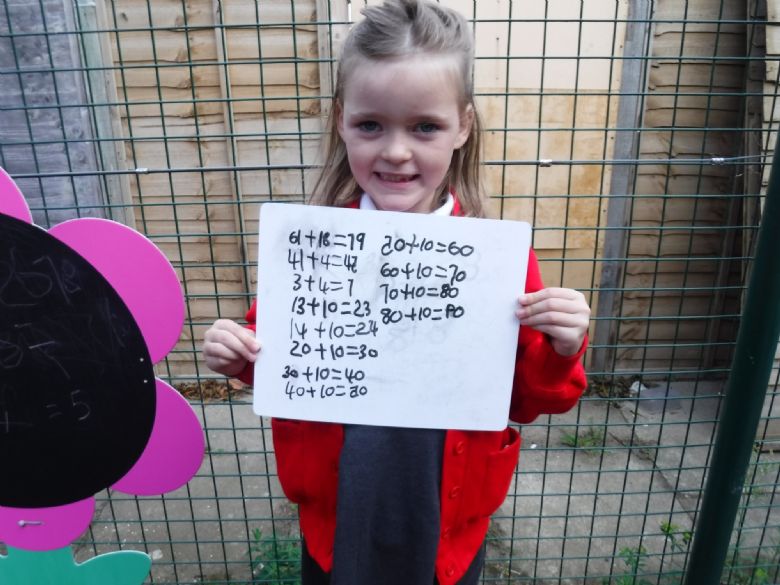 61+18=79
41+4=42
3+4=7
13+10=23
14+10=24
20+10=30
30+10=40
40+10=50
50+10=60
60+10=70
70+10=80
80+10=90
=5